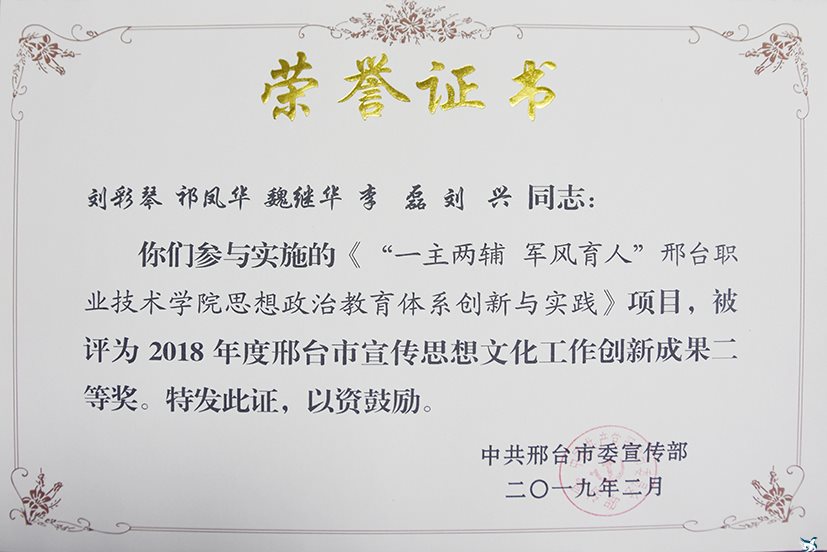 荣誉证书
刘彩琴 祁凤华 魏继华 李 磊 刘 兴 同志：
你们参与实施的《“一主两辅 军风育人”邢台职
业技术学院思想政治教育体系创新与实践》项目，被
评为 2018 年度邢台市宣传思想文化工作创新成果二
等奖。特发此证，以资鼓励。
中共邢台市委宣传部
二〇一九年二月